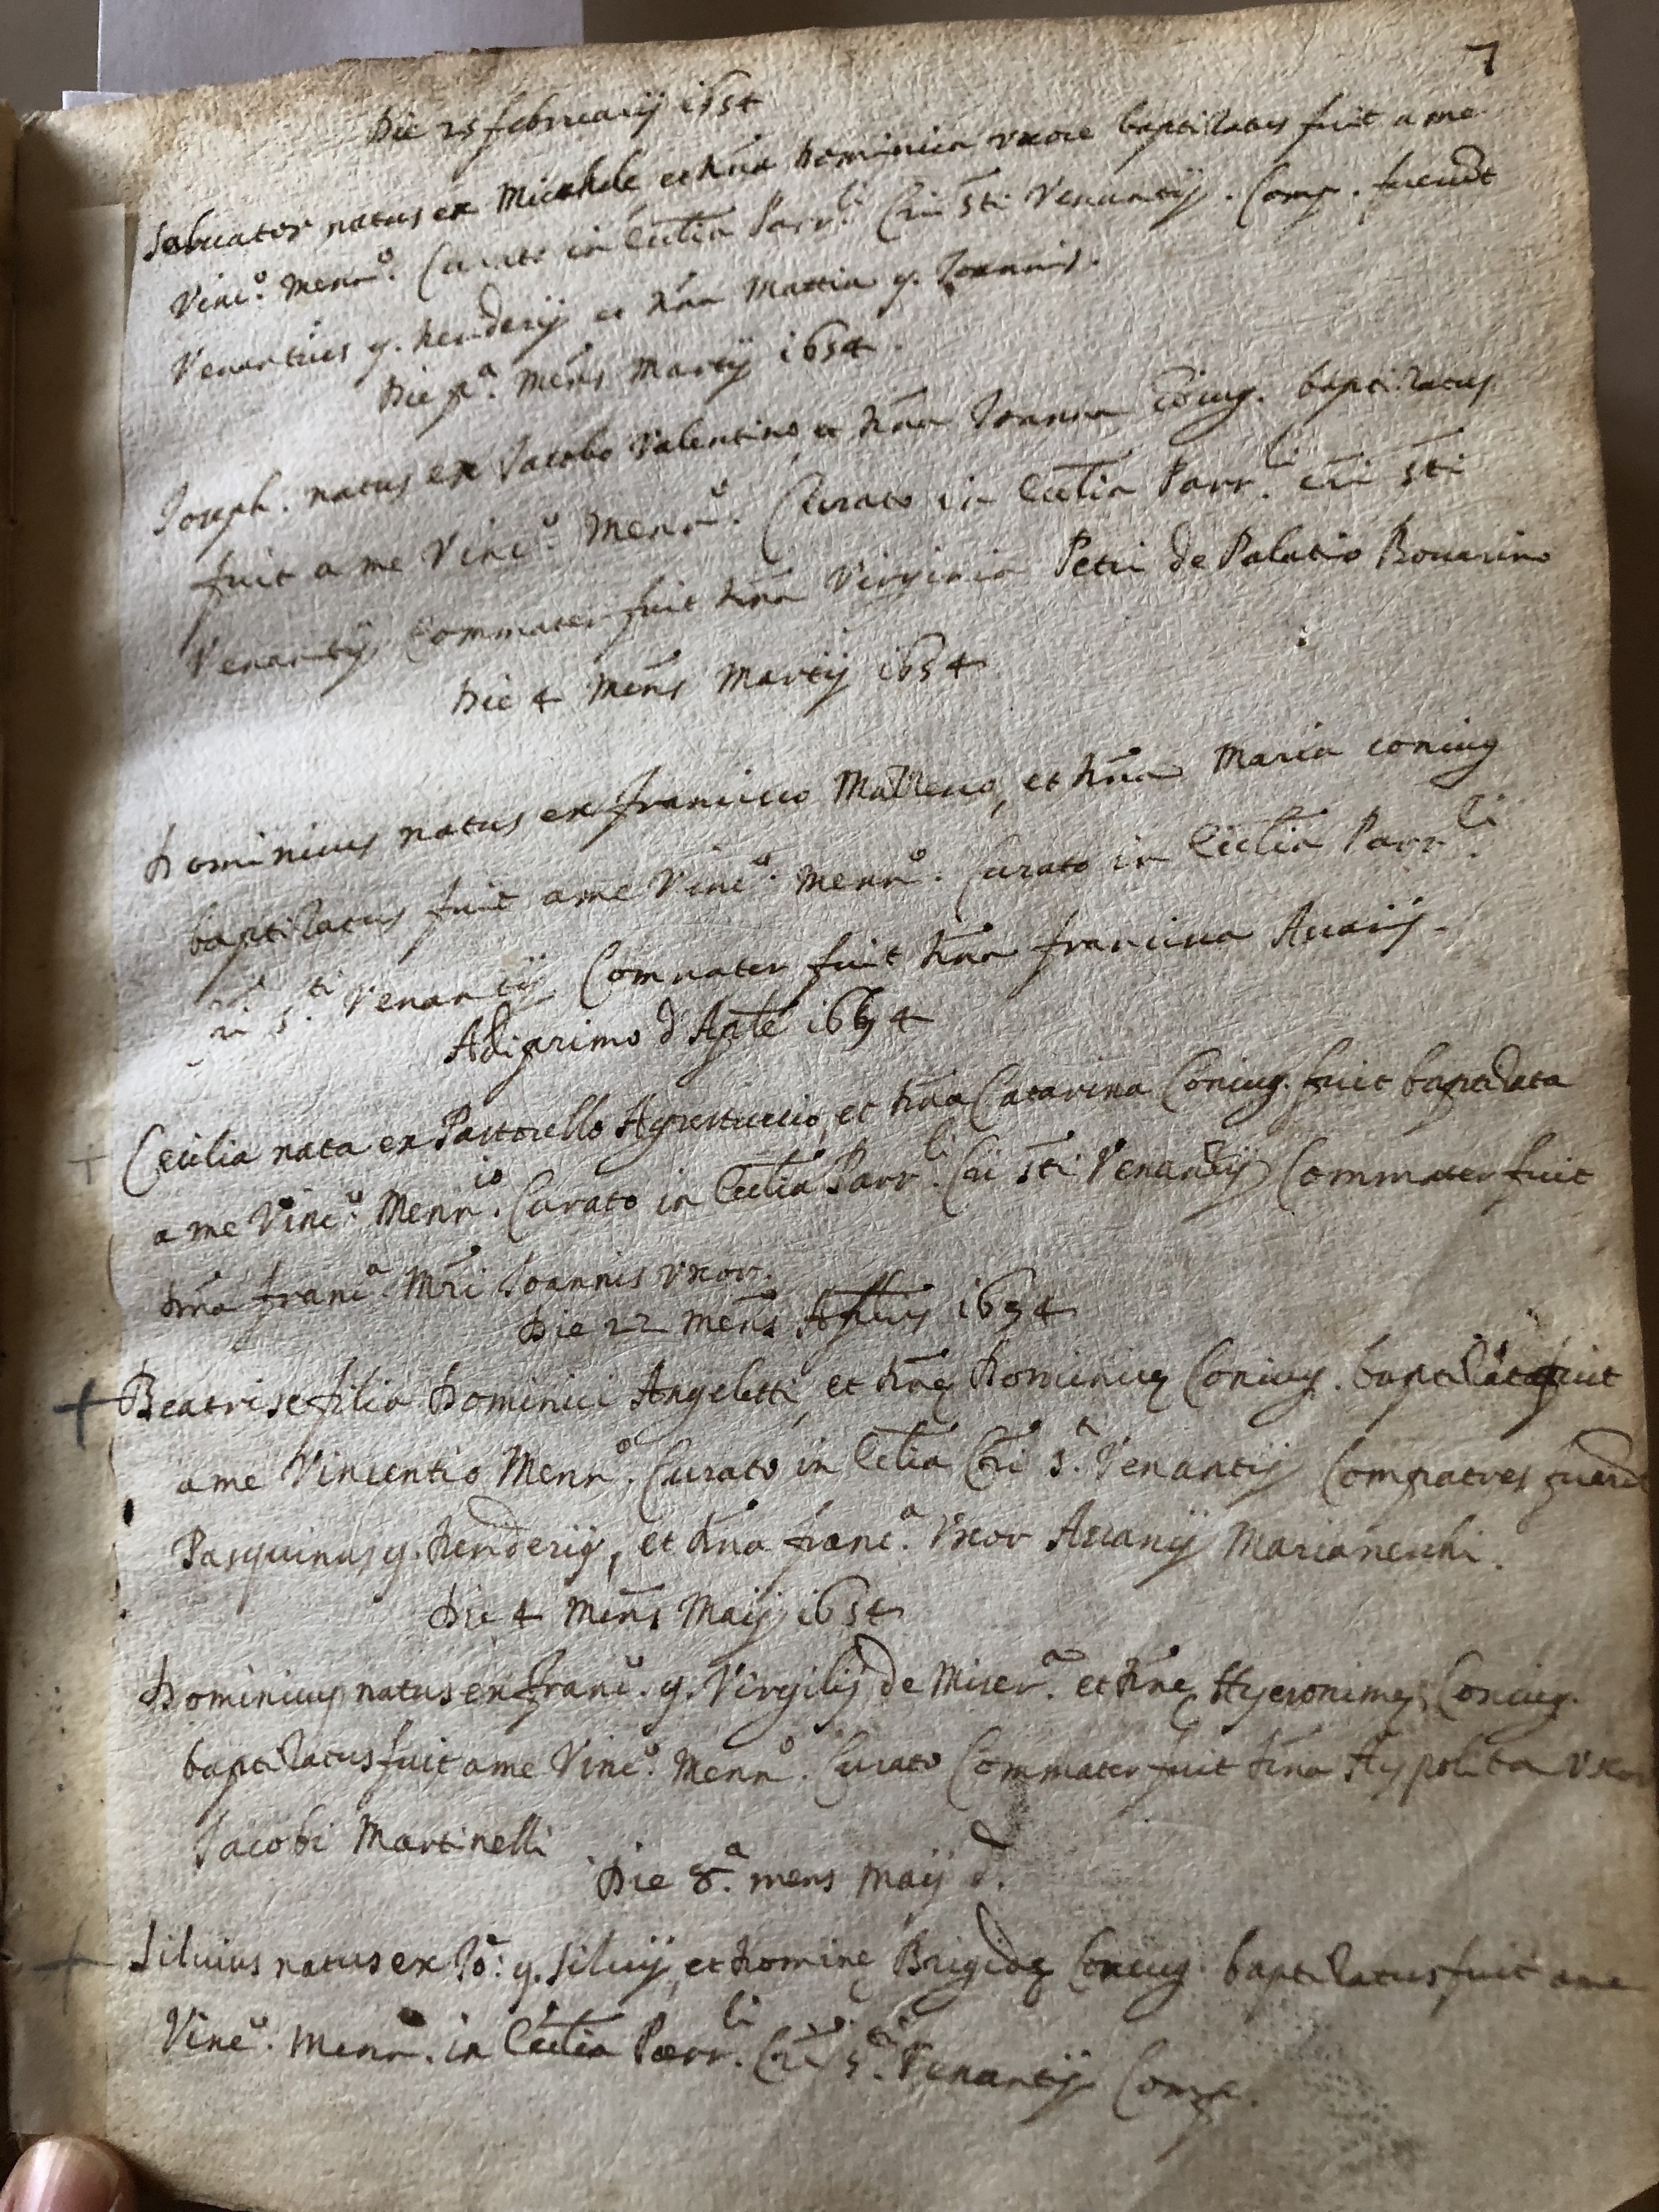 7
Die 25 februarij 1654
Saluator natus ex Michele et Dna Dominica uxore baptizatus fuit a me
Vinc.º Menn.º Curato in Ecctia Parr.li Cri Sti Venantij. Comp. fuerūt
Venantius q. Denderij et Dna Mattia q. Joannis.
Die pª. Mens Martij 1654.
Joseph. natus ex Jacobo Valentino, et Dna Joanna Coiug. baptizatus
fuit a me Vinc.º Menn.º Curato in Ecctia Parr.li Cri Sti
Venantij Commater fuit Dna Virginia Petri de Palatio Bouarino
Die 4 Mens Martij 1654
Dominicus natus ex francisco Matteuo, et Dna Maria coniug
baptizatus fuit a me Vinc.º Menn.º Curato in Ecctia Parr.li
Cri S.ti Venantij Commater fuit Dna francisca Ascanij.
Adi primo d'Aple 1654
Cecilia nata ex Pastorello Agrestuccio, et Dna Catarina Coniug. fuit baptizata
a me Vinc.º Menn.io Curato in Ecctia Parr.li Cri Sti Venantij Commater fuit
Dna Franc.ª Mri Joannis uxor.
Die 22 mens Aplis 1654
Beatrise filia Dominici Angeletti, et Dnę Dominicę Coniug. baptizata fuit
a me Vincentio Menn.º Curato in Ectia Cri S.ti Venantij Compatres fuerūt
Pasquinus q. Denderij, et Dna franc.ª Uxor Ascanij Marianecchi.
Die 4 Mens Maij 1654
Dominicus natus ex Franc.º q. Virgilij de Miser.ª et Dnę Hyeronimę Coniug.
baptizatus fuit a me Vinc.º Menn.º Curato Commater fuit Dna Hypolita Uxor
Jacobi Martinelli
Die 8.ª mens Maij d.
Siluius natus ex Jo: q. Siluij, et Dominę Brigidę Coniug. baptizatus fuit a me
Vinc.º Menn. in Ecctia Parr.li Cri S.ti Venantij Comp.